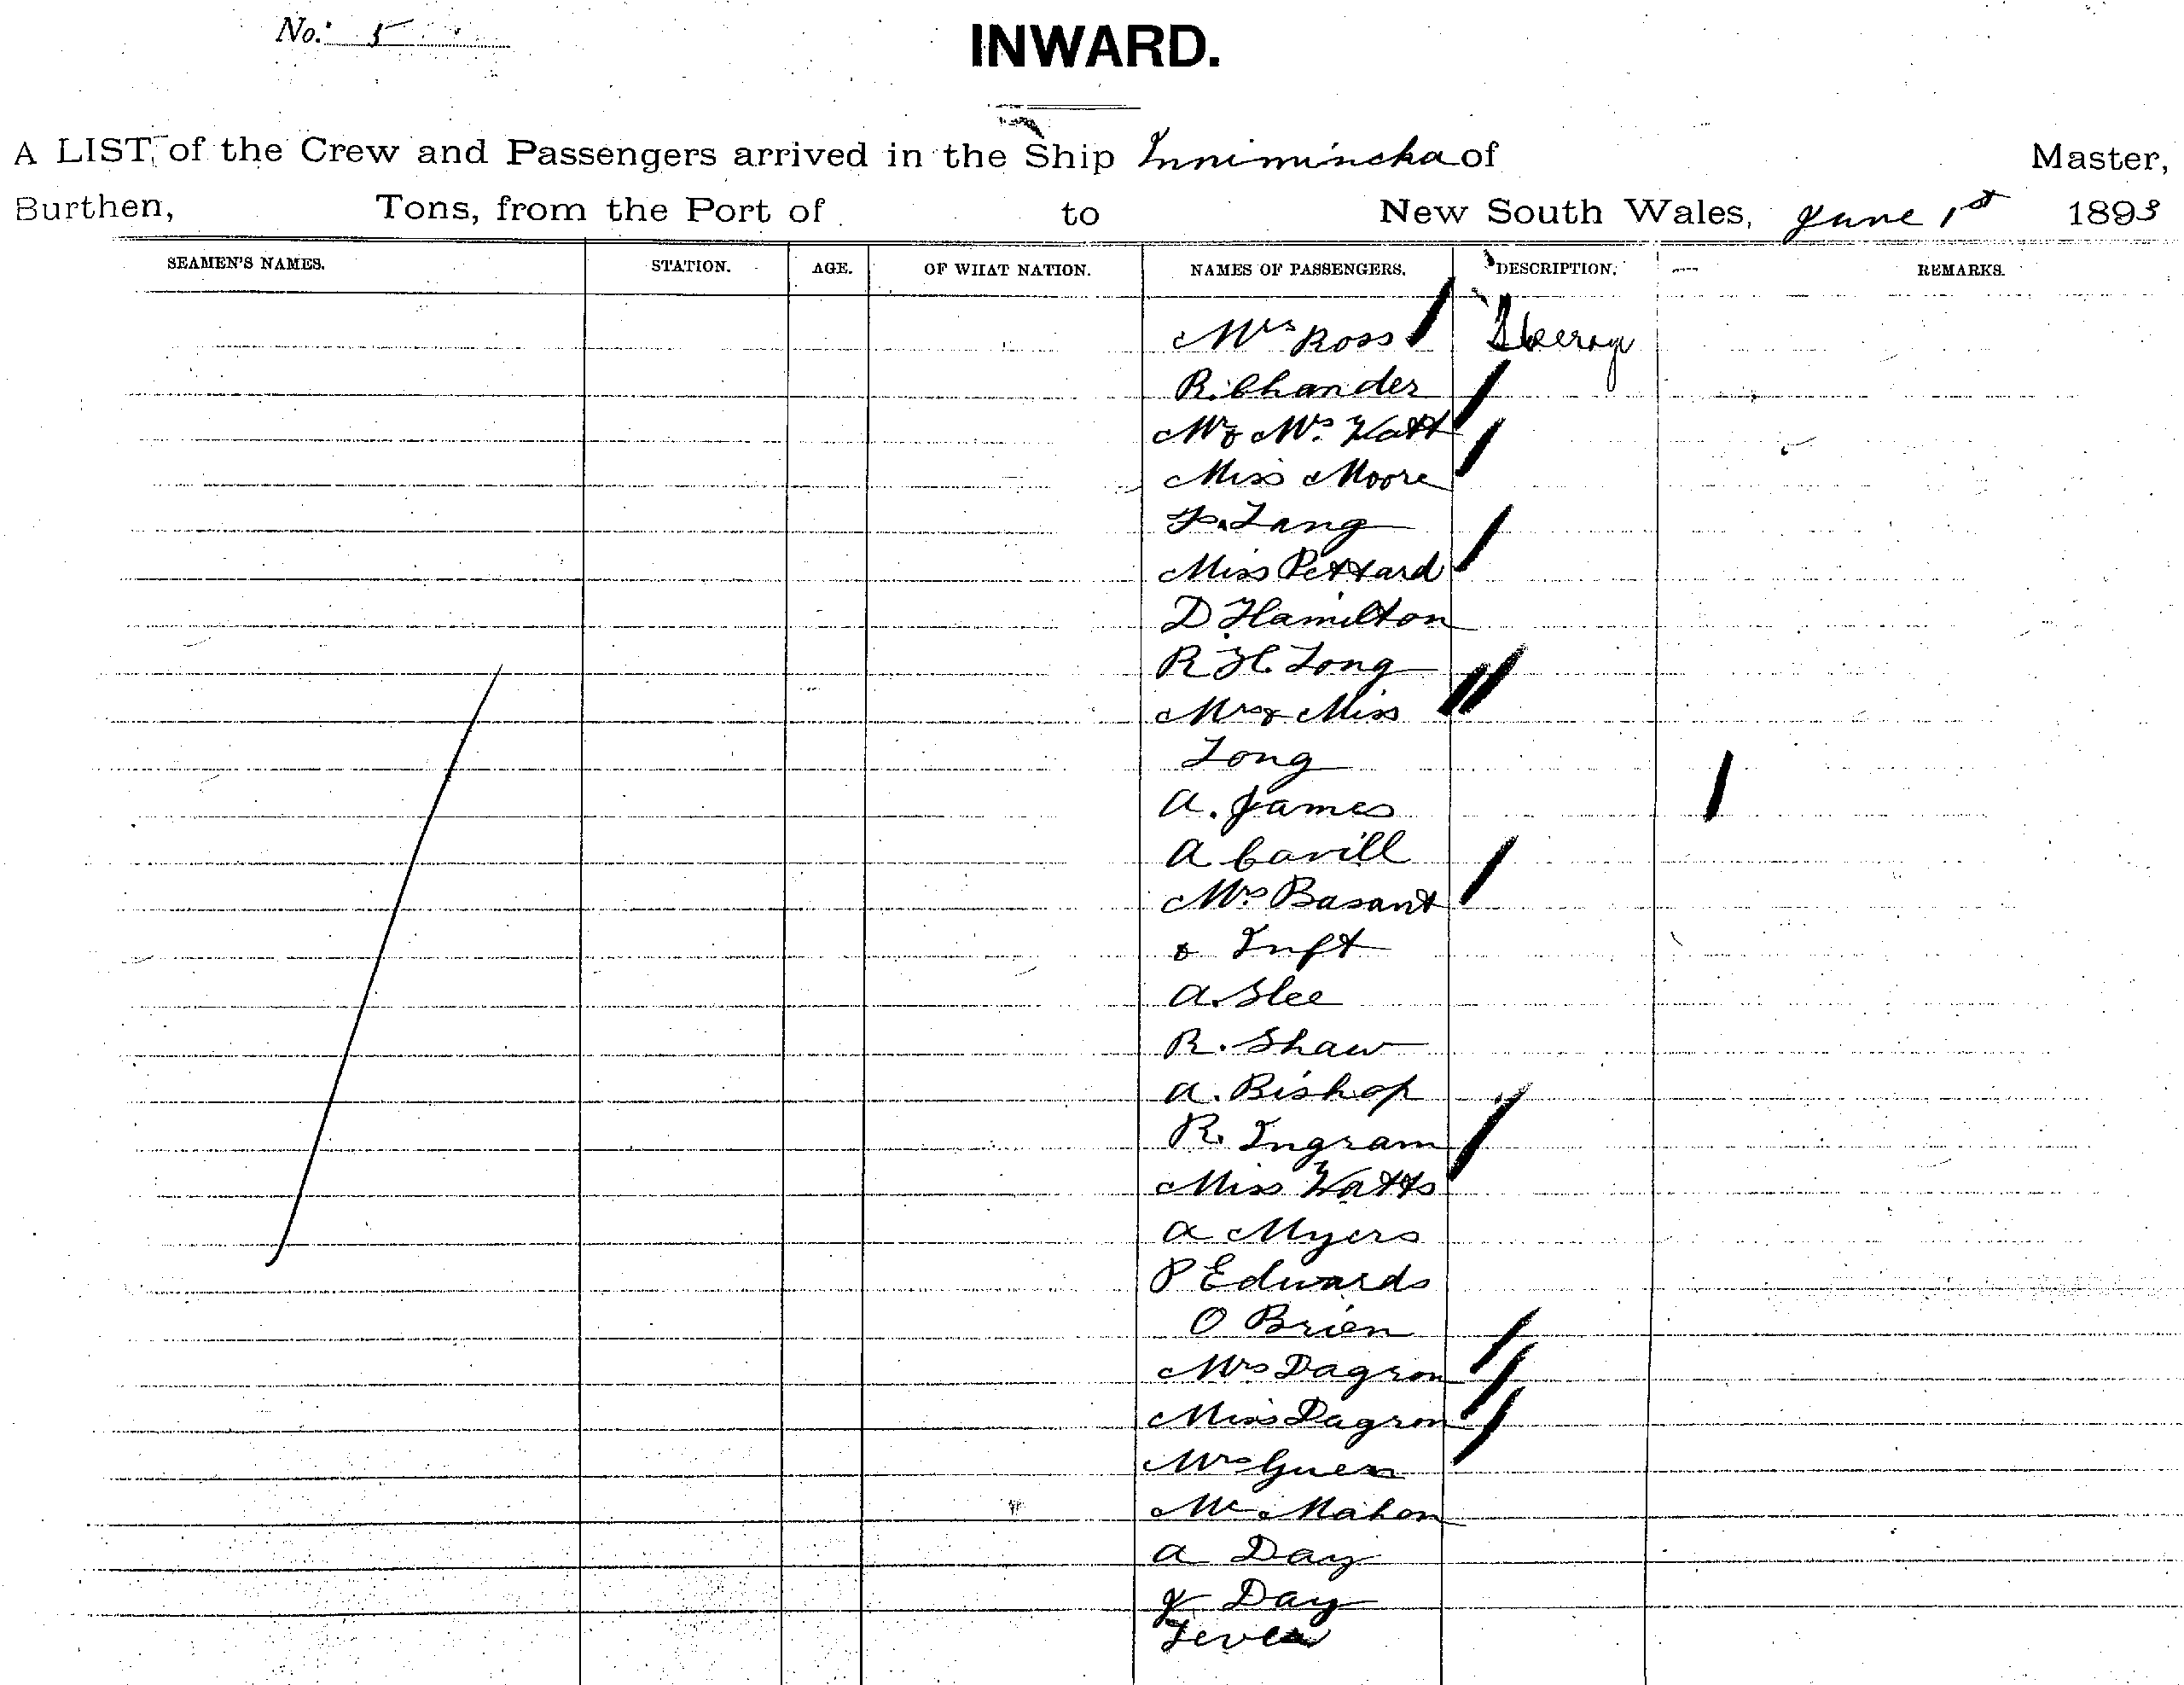 No. 5
INWARD.
A LIST, of the Crew and Passengers arrived in the Ship Innimincka of Master,
Burthen, Tons, from the Port of to New South Wales, June 1st 1893
SEAMEN'S NAMES. STATION. AGE. OF WHAT NATION. NAMES OF PASSENGERS. DESCRIPTION. REMARKS.
Mrs Ross Steerage
R. Chander
Mr & Mrs Watt
Miss Moore
F. Lang
Miss Pettard
D Hamilton
R H. Long
Mrs & Miss
Long
A. James
A Cavill
Mrs Basant
& Inft
A. Slee
R. Shaw
A. Bishop
R. Ingram
Miss Watts
A Myers
P Edwards
O Brien
Mrs Dagron
Miss Dagron
Mrs
Mc Mahon
A Day
J Day